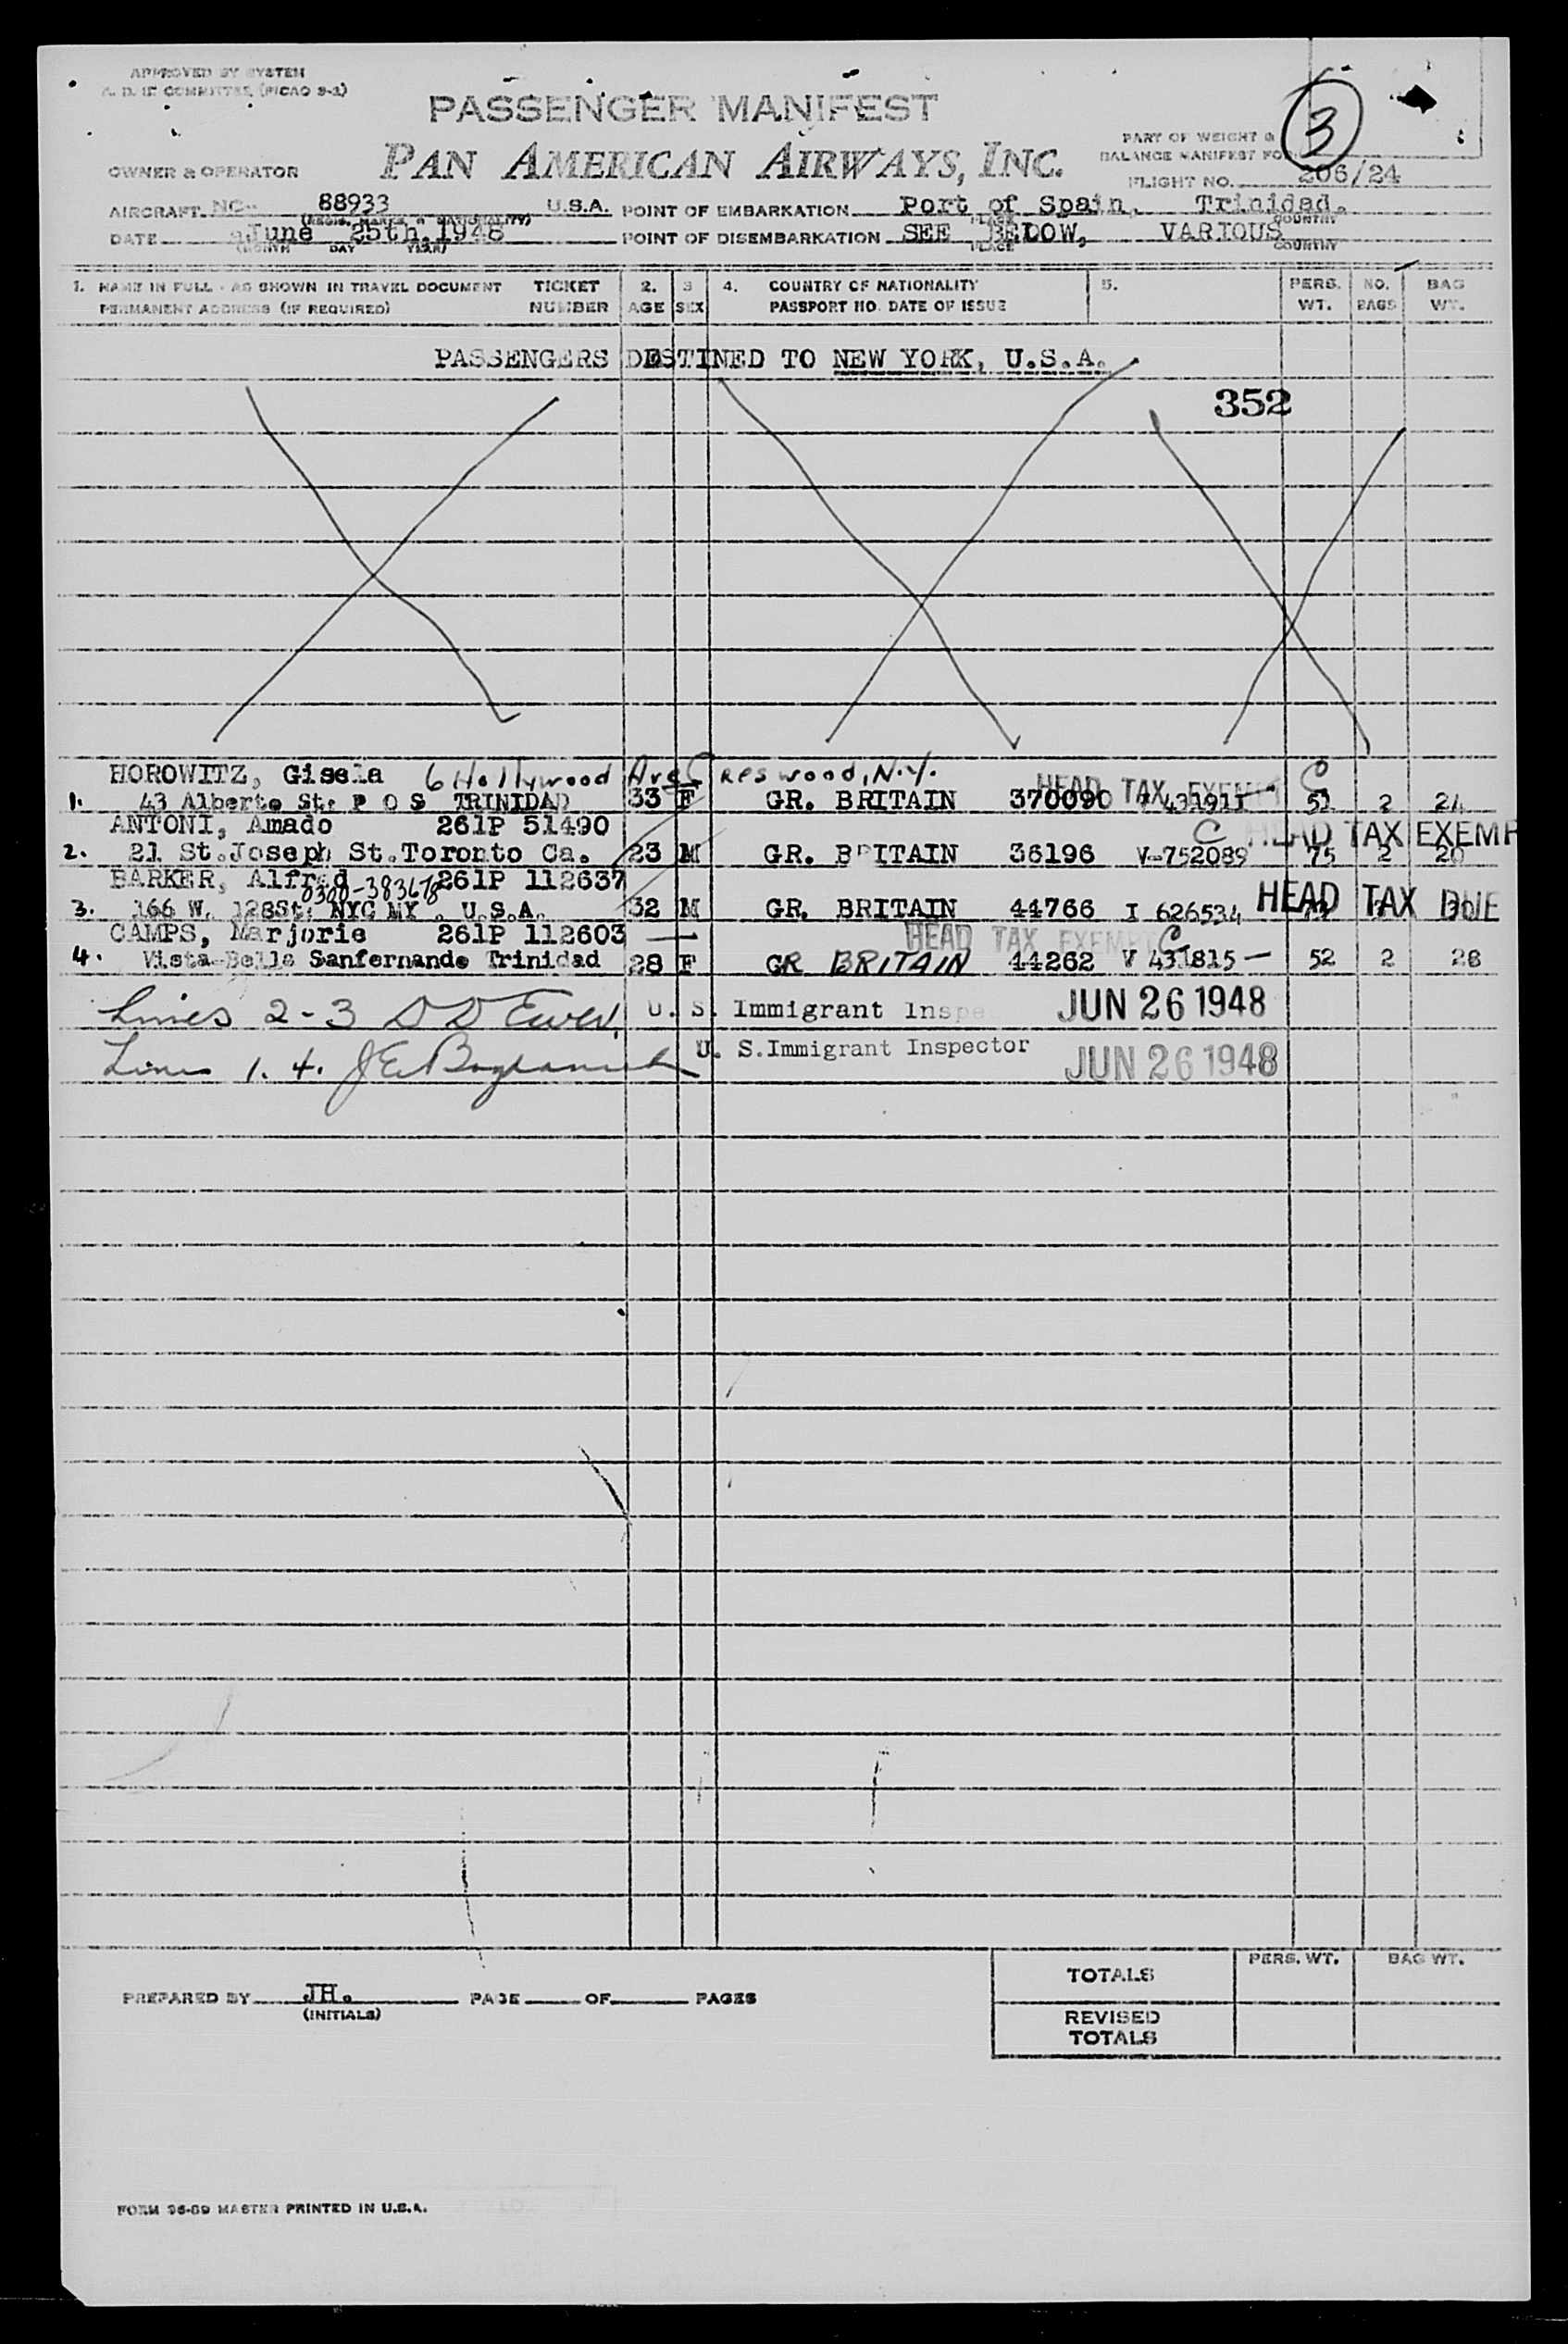 APPROVED BY SYSTEM
A. D. IF COMMITTEE (PICAO 9-1)
PASSENGER MANIFEST
3
PART OF WEIGHT &
BALANCE MANIFEST FOR
OWNER & OPERATOR PAN AMERICAN AIRWAYS, INC.
FLIGHT NO. 206/24
AIRCRAFT NC- 88933 U.S.A. POINT OF EMBARKATION Port of Spain, Trinidad.
(REGIS. MARKS & NATIONALITY) PLACE COUNTRY
DATE June 25th, 1948 POINT OF DISEMBARKATION SEE BELOW, VARIOUS
(MONTH DAY YEAR) PLACE COUNTRY
1. NAME IN FULL - AS SHOWN IN TRAVEL DOCUMENT TICKET 2. 3 4. COUNTRY OF NATIONALITY 5. PERS. NO. BAG
PERMANENT ADDRESS (IF REQUIRED) NUMBER AGE SEX PASSPORT NO. DATE OF ISSUE WT. BAGS WT.
PASSENGERS DESTINED TO NEW YORK, U.S.A.
352
HOROWITZ, Gisela 6 Hollywood Ave Creswood, N.Y. HEAD TAX EXEMPT C
1. 43 Alberto St: P O S TRINIDAD 33 F GR. BRITAIN 370090 431911 51 2 24
ANTONI, Amado 261P 51490 C HEAD TAX EXEMP
2. 21 St.Joseph St.Toronto Ca. 23 M GR. BRITAIN 36196 V-752089 75 2 20
BARKER, Alfred 261P 112637
0300-383678
3. 166 W. 128St: NYC NY . U.S.A. 32 M GR. BRITAIN 44766 I 626534 HEAD TAX DUE
CAMPS, Marjorie 261P 112603 HEAD TAX EXEMPT C
4. Vista-Bella Sanfernando Trinidad 28 F GR BRITAIN 44262 V 431815 — 52 2 28
Lines 2-3 D D Ewen, U. S. Immigrant Inspe JUN 26 1948
Lines 1. 4. J E U. S.Immigrant Inspector JUN 26 1948
TOTALS PERS. WT. BAG WT.
PREPARED BY JH. PAGE OF PAGES
(INITIALS)
REVISED
TOTALS
FORM 96-89 MASTER PRINTED IN U.S.A.